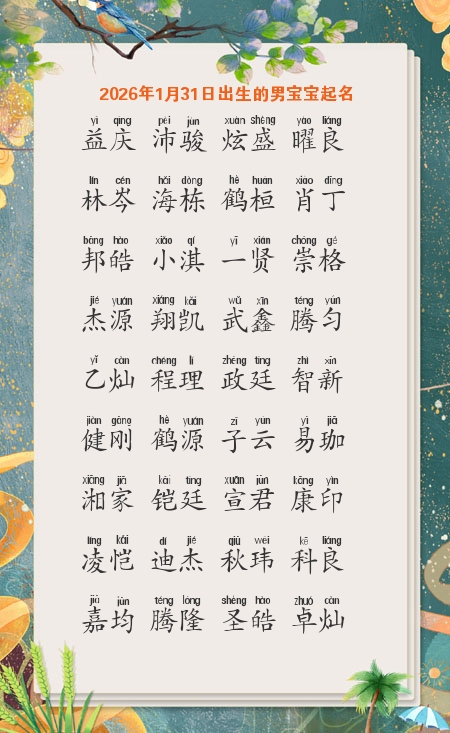 2026年1月31日出生的男宝宝起名
yì qìng pèi jùn xuàn shèng yào liáng
益庆 沛骏 炫盛 曜良
lín cén hǎi dòng hè huán xiào dīng
林岑 海栋 鹤桓 肖丁
bāng hào xiǎo qí yī xián chóng gé
邦皓 小淇 一贤 崇格
jié yuán xiáng kǎi wǔ xīn téng yún
杰源 翔凯 武鑫 腾匀
yǐ càn chéng lǐ zhèng tíng zhì xīn
乙灿 程理 政廷 智新
jiàn gāng hè yuán zǐ yún yì jiā
健刚 鹤源 子云 易珈
xiāng jiā kǎi tíng xuān jūn kāng yìn
湘家 铠廷 宣君 康印
líng kǎi dí jié qiū wěi kē liáng
凌恺 迪杰 秋玮 科良
jiā jūn téng lóng shèng hào zhuó càn
嘉均 腾隆 圣皓 卓灿